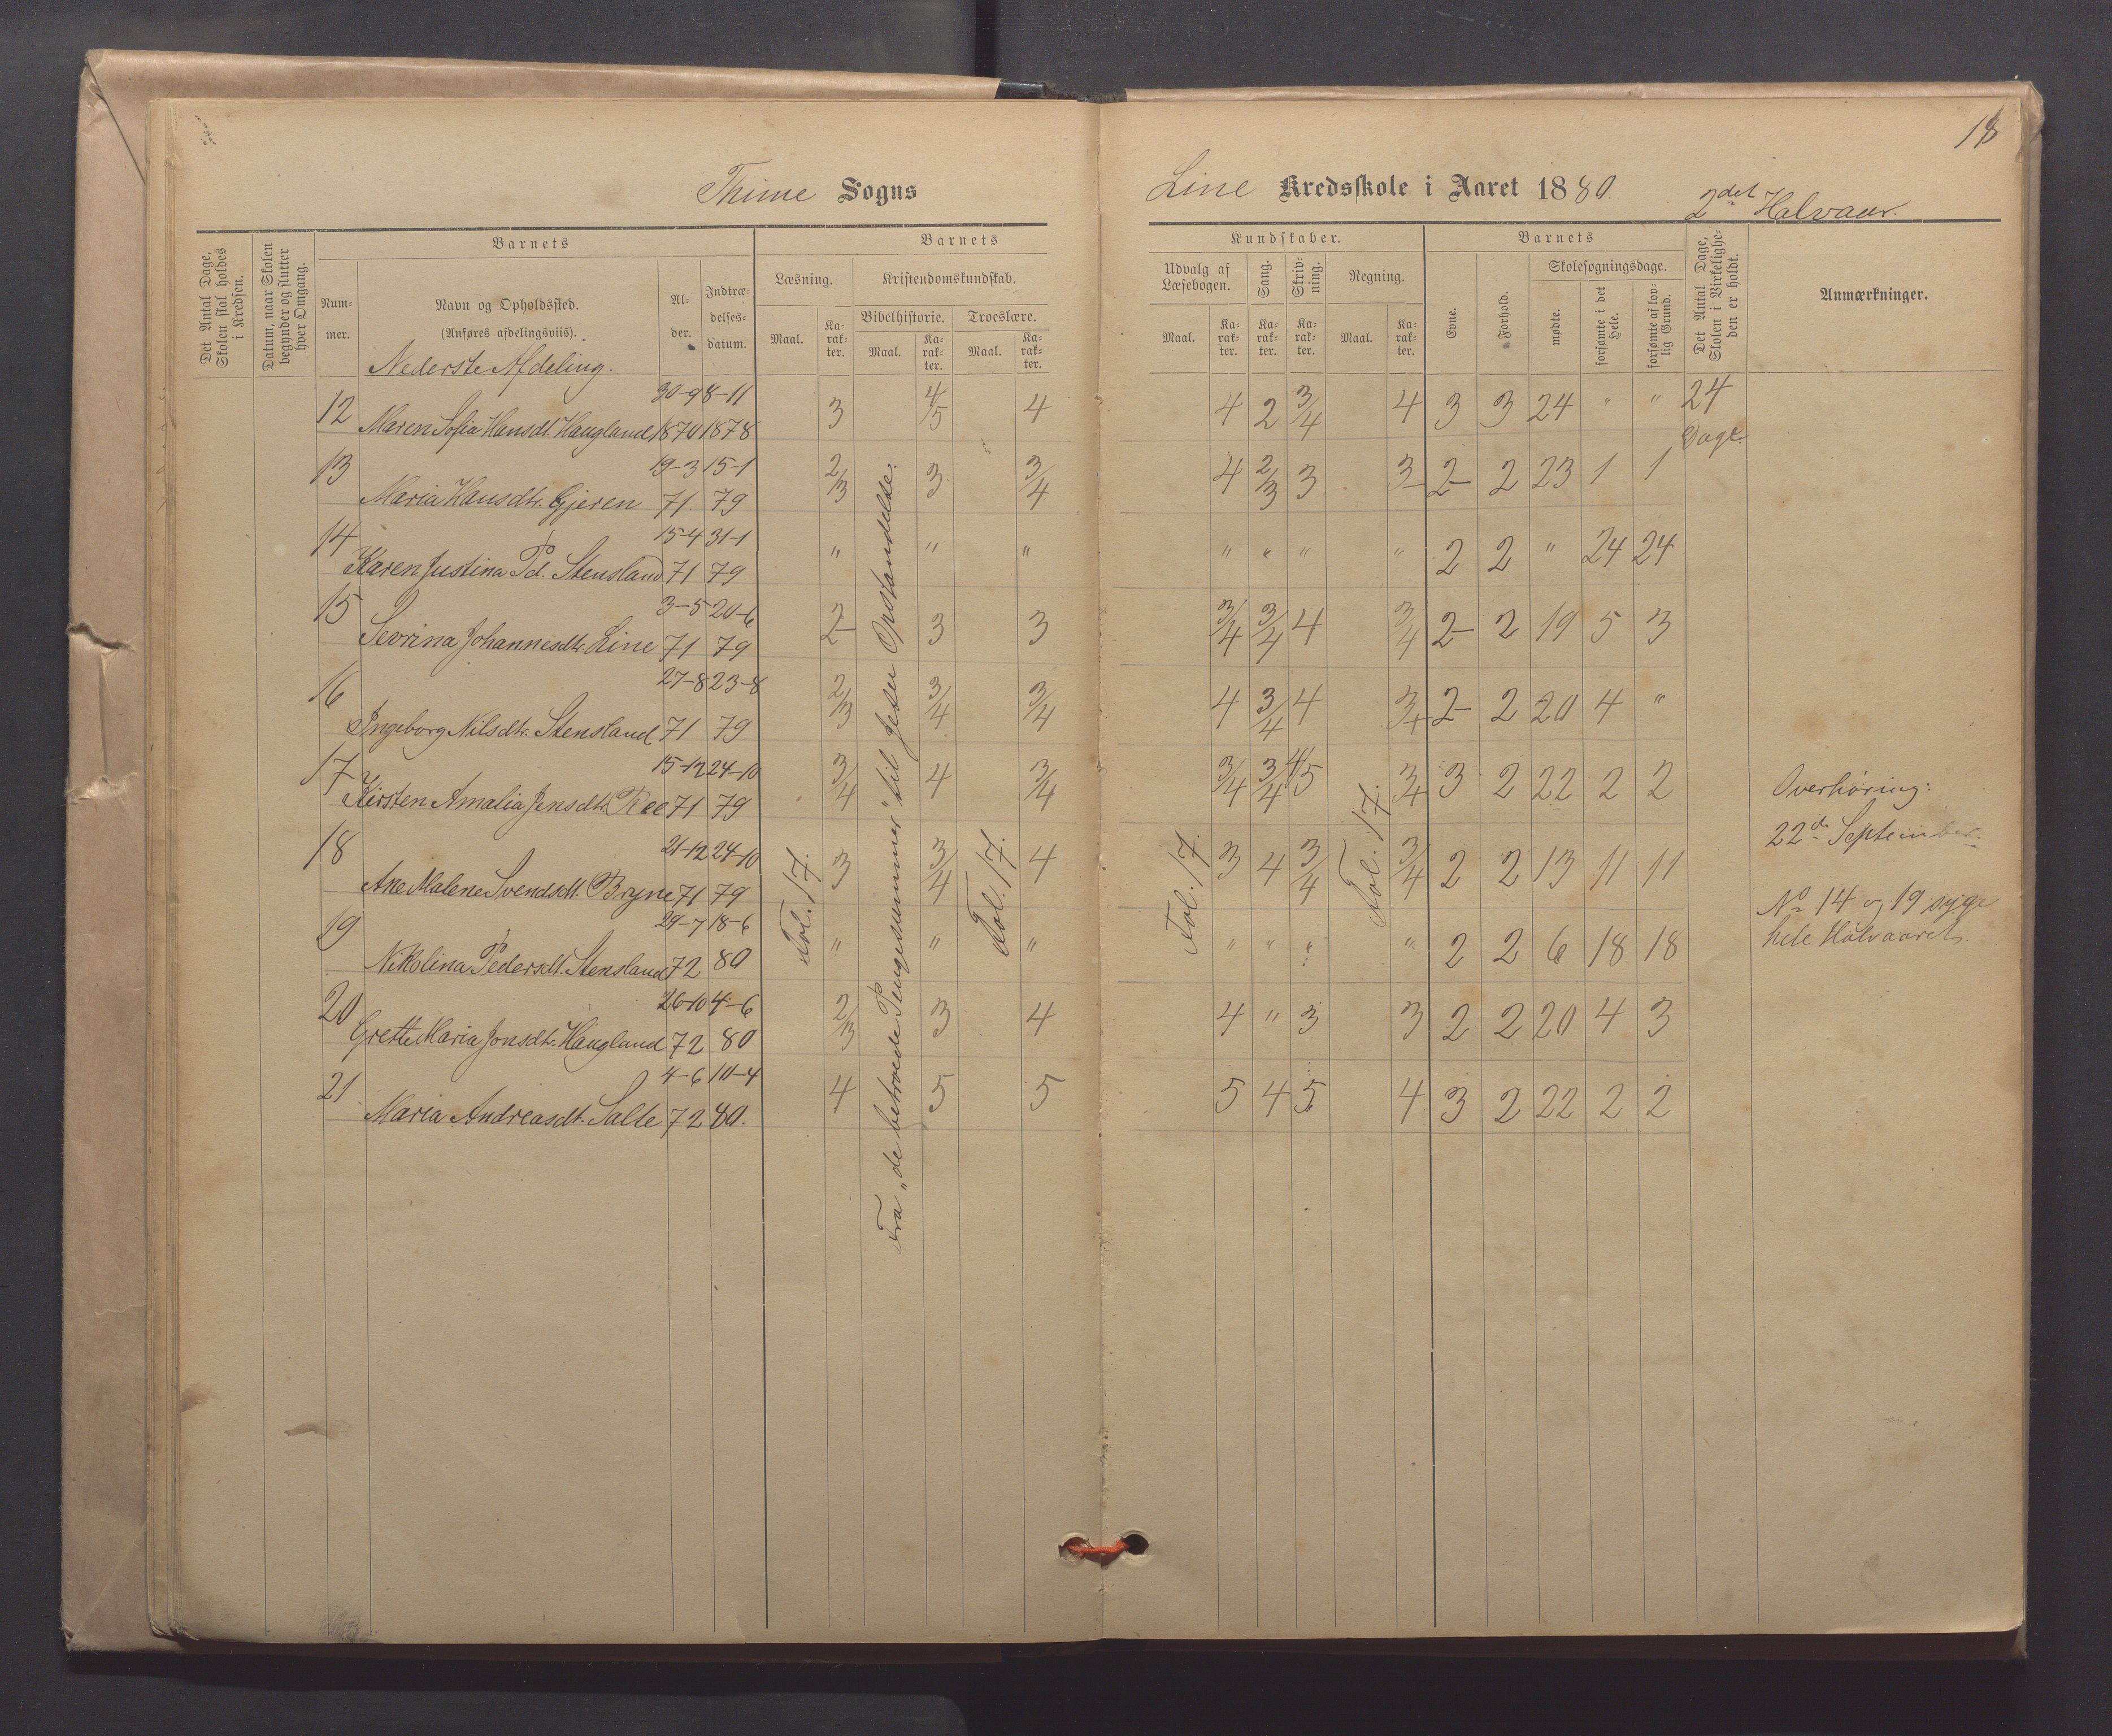 18
Thime Sogns
Line Kredsskole i Aaret 1880.
2det Halvaar.
Det Antal Dage, Skolen skal holdes i Kredsen.
Datum, naar Skolen begynder og slutter hver Omgang.
Barnets
Nummer.
Navn og Opholdssted.
(Anføres afdelingsviis).
Alder.
Indtrædelsesdatum.
Barnets
Læsning.
Maal.
Karakter.
Kristendomskundskab.
Bibelhistorie.
Maal.
Karakter.
Troeslære.
Maal.
Karakter.
Kundskaber.
Udvalg af Læsebogen.
Maal.
Karakter.
Sang.
Karakter.
Skrivning.
Karakter.
Regning.
Maal.
Karakter.
Barnets
Evne.
Forhold.
Skolesøgningsdage.
mødte.
forsømte i det Hele.
forsømte af lovlig Grund.
Det Antal Dage, Skolen i Virkeligheden er holdt.
Anmærkninger.
Nederste Afdeling.
30-9 8-11
12 Maren Sofia Hansdt. Haugland 1870 1878 3 4/5 4 4 2 3/4 4 3 3 24 " " 24 Dage
19-3 15-1
13 Maria Hansdtr. Gjeren 71 79 2/3 3 3/4 4 2/3 3 3- 2- 2 23 1 1
15-4 31-1
14 Karen Justina Pd. Stensland 71 79 " " " " " " " 2 2 " 24 24
3-5 20-6
15 Sevrina Johannesdtr. Line 71 79 2- 3 3 3/4 3/4 4 3/4 2- 2 19 5 3
27-8 23-8
16 Ingeborg Nilsdtr. Stensland 71 79 2/3 3/4 3/4 4 3/4 4 3/4 2- 2 20 4 "
15-12 24-10
17 Kirsten Amalia Jensdtr. Ree 71 79 3/4 4 3/4 3/4 3/4 4/5 3/4 3 2 22 2 2
21-12 24-10
18 Ane Malene Svendsdt. Bryne 71 79 3 3/4 4 3 4 3/4 3/4 2 2 13 11 11
29-7 18-6
19 Nikolina Pedersdt. Stensland 72 80 " " " " " " " 2 2 6 18 18
26-10 4-6
20 Grette Maria Jonsdtr. Haugland 72 80 2/3 3 4 4 " 3 3 2 2 20 4 3
4-6 10-4
21 Maria Andreasdt. Salte 72 80. 4 5 5 5 4 5 4 3 2 22 2 2
Fol. 17.
Fra „de betroede Pengesummer" til Jesu Opstandelse.
Fol. 17.
Fol. 17.
Fol. 17.
Overhøring:
22de September.
No 14 og 19 syge
hele Halvaaret.